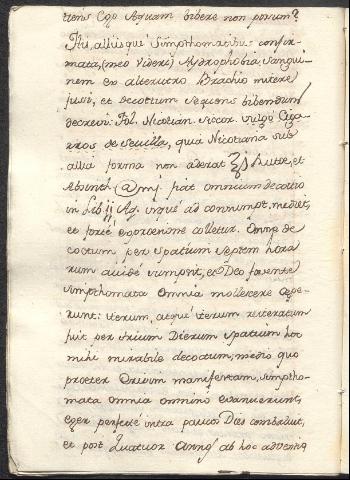 tiens Ego Aquam bibere non possum?
His, alliisque simpthomatibus confir-
mata, (meo Videre) Hydrophobia, sangui-
nem ex alterutro Brachio mitere
jussi, et decoctum sequens bibendum
decrevi: Fol. Nicotian. siccar. vulgo Ciga-
rros de Sevilla, quia Nicotiana sub
allia forma non aderat ʒj Rutae, et
Absinth. @ mj. fiat omnium decoctio
in Lib ij Aq. usque ad consumpt. mediet.
et forte expressione colletur. Omne de
coctum per spatium septem hora
rum avide sumpsit, et Deo favente
simpthomata omnia mollescere cepe-
runt: iterum, atque iterum reiteratum
fuit per trium Dierum spatium hoc
mihi mirabile decoctum, medio quo
praeter Crisim manifestam, simptho-
mata omnia omnino evanuerunt,
eger perfecte intra paucos Dies combaluit,
et post Quatuor Annos ab hoc adventu